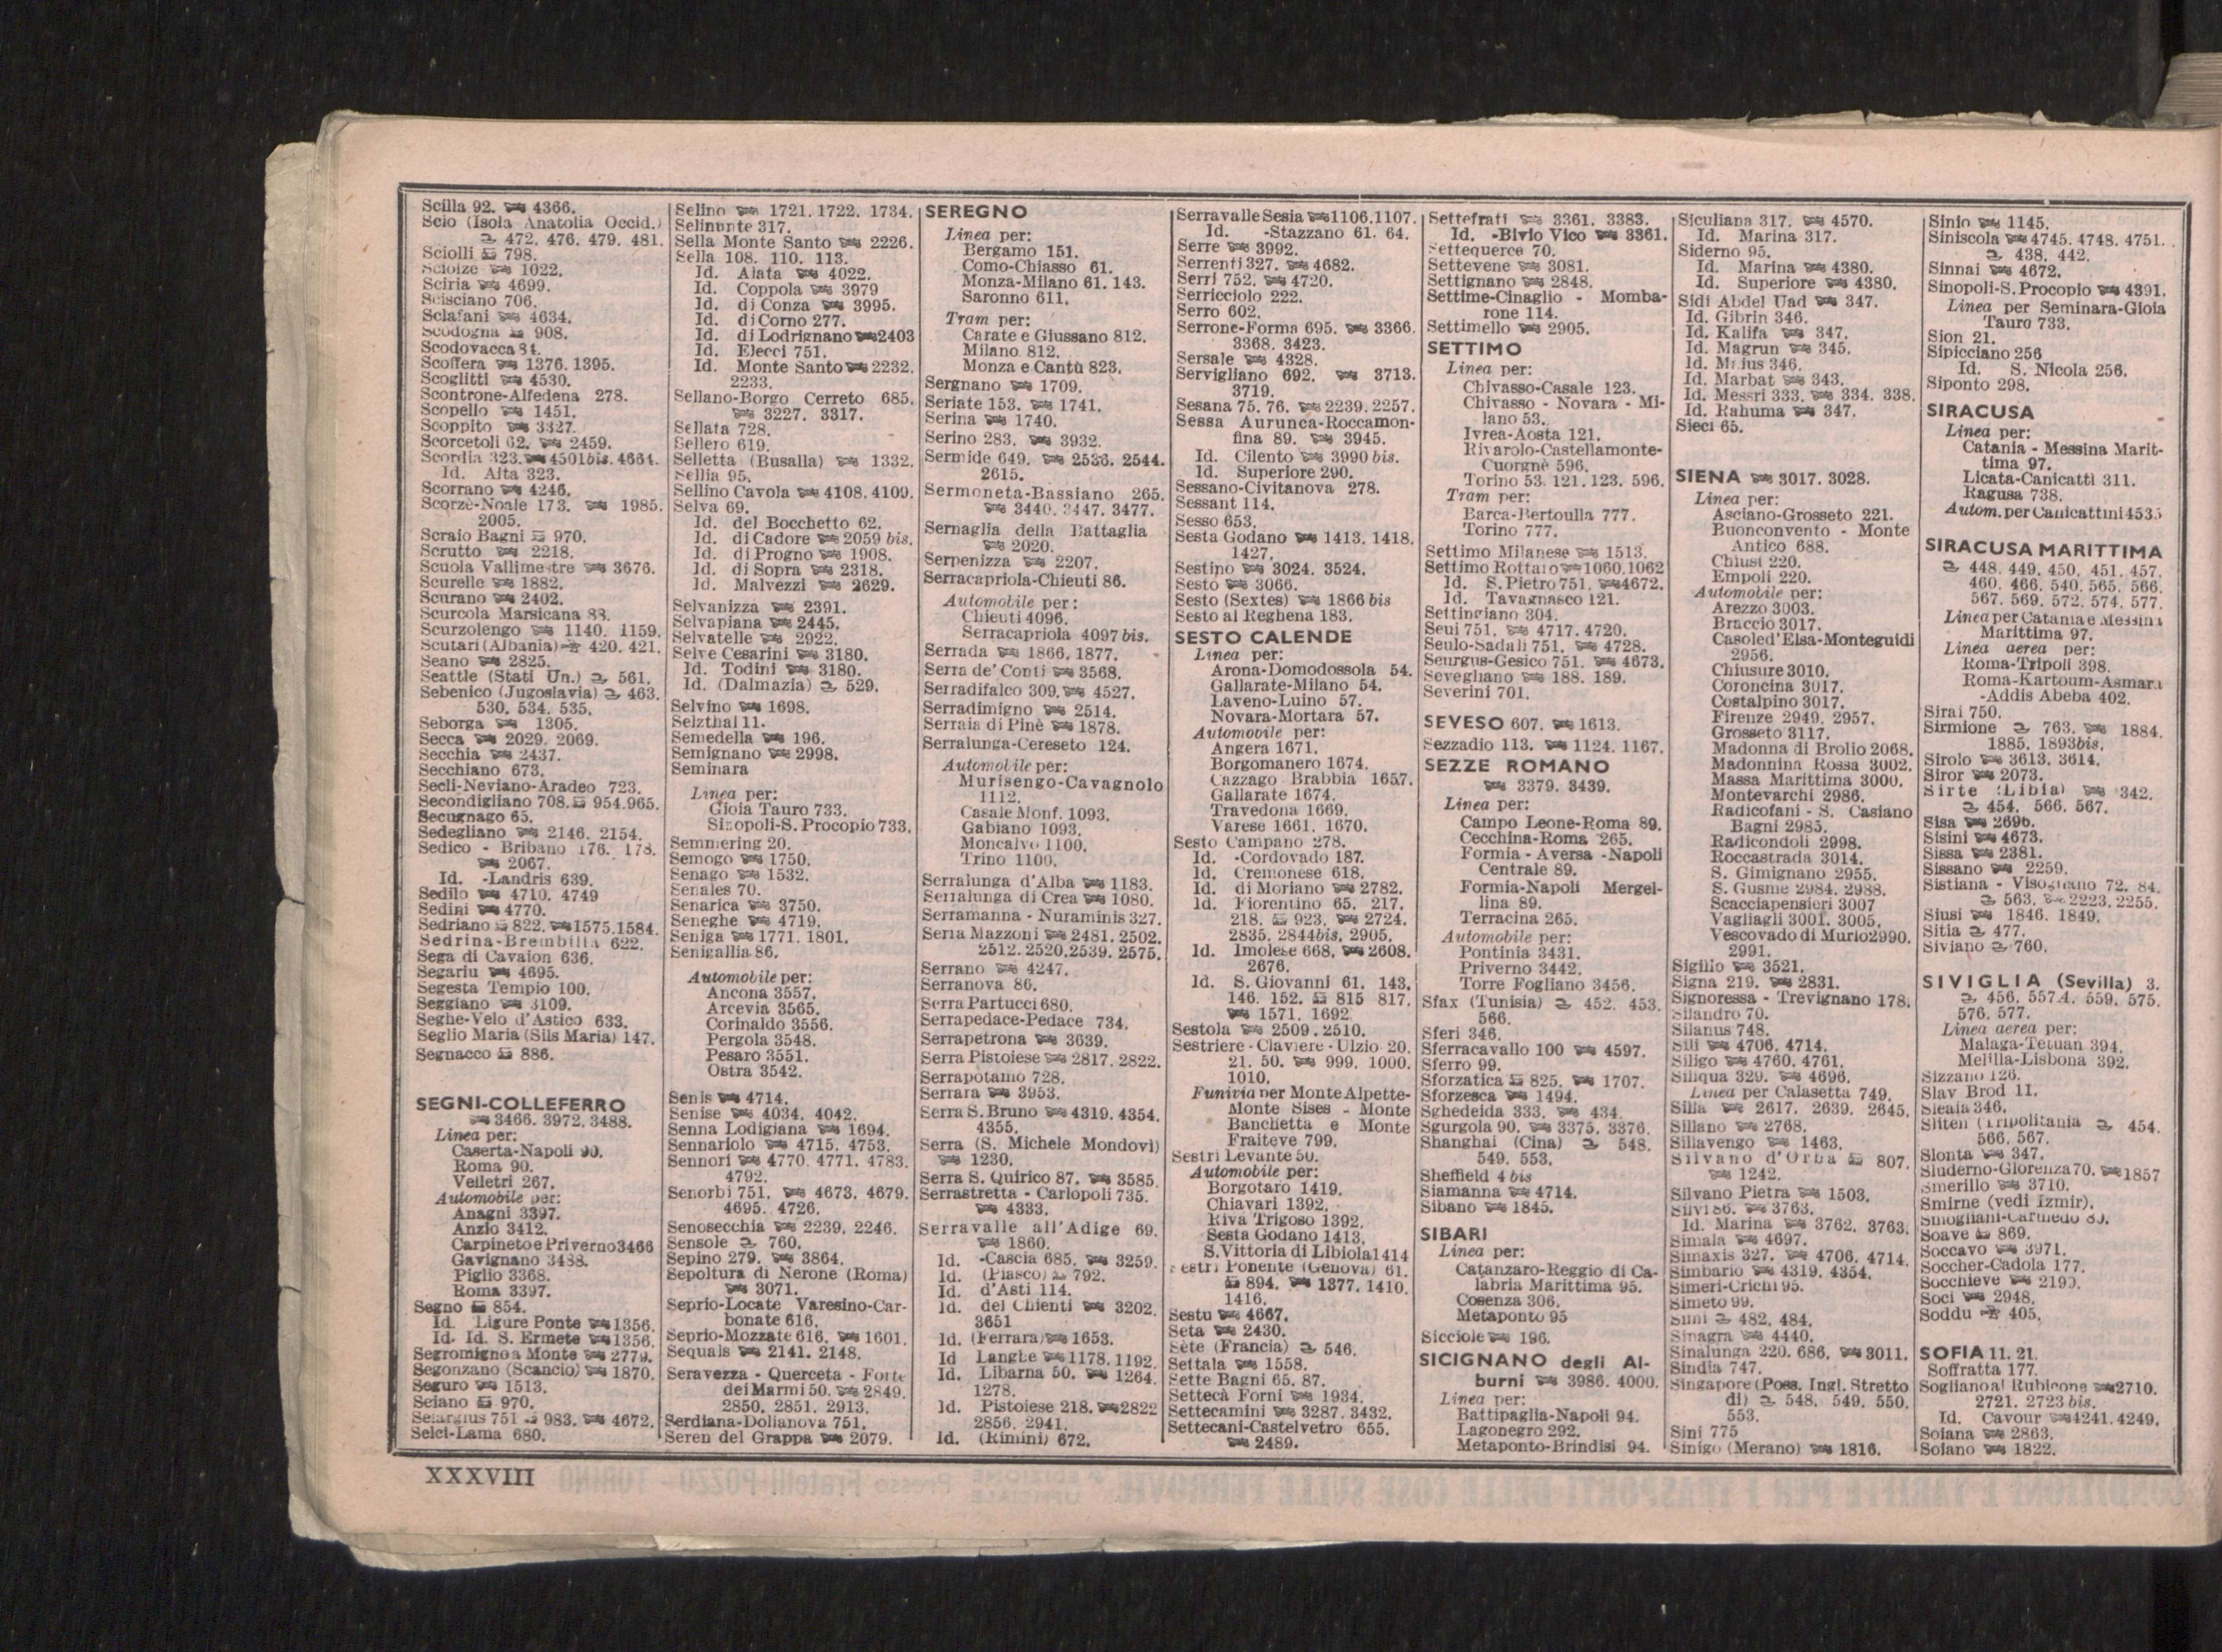 Scilla 92. 4366.
Scio (Isola Anatolia Occid.)
472. 476. 479. 481.
Sciolli 798.
Scioize 1022.
Sciria 4699.
Scisciano 706.
Sclafani 4634.
Scodogna 908.
Scodovacca 84.
Scoffera 1376. 1395.
Scoglitti 4530.
Scontrone-Alfedena 278.
Scopello 1451.
Scoppito 3327.
Scorcetoli 62. 2459.
Scordia 323. 4501bis. 4664.
Id. Alta 323.
Scorrano 4246.
Scorzè-Noale 173. 1985.
2005.
Scraio Bagni 970.
Scrutto 2218.
Scuola Vallimestre 3676.
Scurelle 1882.
Scurano 2402.
Scurcola Marsicana 88.
Scurzolengo 1140. 1159.
Scutari (Albania) 420. 421.
Seano 2825.
Seattle (Stati Un.) 561.
Sebenico (Jugoslavia) 463.
530. 534. 535.
Seborga 1305.
Secca 2029. 2069.
Secchia 2437.
Secchiano 673.
Secli-Neviano-Aradeo 723.
Secondigliano 708. 954.965.
Secugnago 65.
Sedegliano 2146. 2154.
Sedico - Bribano 176. 178.
2067.
Id. -Landris 639.
Sedilo 4710. 4749
Sedini 4770.
Sedriano 822. 1575.1584.
Sedrina-Brembilla 622.
Sega di Cavaion 636.
Segariu 4695.
Segesta Tempio 100.
Seggiano 3109.
Seghe-Velo d'Astico 633.
Seglio Maria (Sils Maria) 147.
Segnacco 886.
SEGNI-COLLEFERRO
3466. 3972. 3488.
Linea per:
Caserta-Napoli 90.
Roma 90.
Velletri 267.
Automobile per:
Anagni 3397.
Anzio 3412.
Carpineto e Priverno 3466
Gavignano 3488.
Piglio 3368.
Roma 3397.
Segno 854.
Id. Ligure Ponte 1356.
Id. Id. S. Ermete 1356.
Segromigno a Monte 2779.
Segonzano (Scancio) 1870.
Seguro 1513.
Seiano 970.
Selargius 751 983. 4672.
Selci-Lama 680.
Selino 1721. 1722. 1734.
Selinunte 317.
Sella Monte Santo 2226.
Sella 108. 110. 113.
Id. Alata 4022.
Id. Coppola 3979
Id. di Conza 3995.
Id. di Corno 277.
Id. di Lodrignano 2403
Id. Elecci 751.
Id. Monte Santo 2232.
2233.
Sellano-Borgo Cerreto 685.
3227. 3317.
Sellata 728.
Sellero 619.
Selletta (Busalla) 1332.
Sellia 95.
Sellino Cavola 4108. 4109.
Selva 69.
Id. del Bocchetto 62.
Id. di Cadore 2059 bis.
Id. di Progno 1908.
Id. di Sopra 2318.
Id. Malvezzi 2629.
Selvanizza 2391.
Selvapiana 2445.
Selvatelle 2922.
Selve Cesarini 3180.
Id. Todini 3180.
Id. (Dalmazia) 529.
Selvino 1698.
Selzthal 11.
Semedella 196.
Semignano 2998.
Seminara
Linea per:
Gioia Tauro 733.
Sinopoli-S. Procopio 733.
Semmering 20.
Semogo 1750.
Senago 1532.
Senales 70.
Senarica 3750.
Seneghe 4719.
Seniga 1771. 1801.
Senigallia 86.
Automobile per:
Ancona 3557.
Arcevia 3565.
Corinaldo 3556.
Pergola 3548.
Pesaro 3551.
Ostra 3542.
Senis 4714.
Senise 4034. 4042.
Senna Lodigiana 1694.
Sennariolo 4715. 4753.
Sennori 4770. 4771. 4783.
4792.
Senorbi 751. 4673. 4679.
4695. 4726.
Senosecchia 2239. 2246.
Sensole 760.
Sepino 279. 3864.
Sepoltura di Nerone (Roma)
3071.
Seprio-Locate Varesino-Car-
bonate 616.
Seprio-Mozzate 616. 1601.
Sequals 2141. 2148.
Seravezza - Querceta - Forte
dei Marmi 50. 2849.
2850. 2851. 2913.
Serdiana-Dolianova 751.
Seren del Grappa 2079.
SEREGNO
Linea per:
Bergamo 151.
Como-Chiasso 61.
Monza-Milano 61. 143.
Saronno 611.
Tram per:
Carate e Giussano 812.
Milano 812.
Monza e Cantù 823.
Sergnano 1709.
Seriate 153. 1741.
Serina 1740.
Serino 283. 3932.
Sermide 649. 2536. 2544.
2615.
Sermoneta-Bassiano 265.
3440. 3447. 3477.
Sernaglia della Battaglia
2020.
Serpenizza 2207.
Serracapriola-Chieuti 86.
Automobile per:
Chieuti 4096.
Serracapriola 4097 bis.
Serrada 1866. 1877.
Serra de' Conti 3568.
Serradifalco 309. 4527.
Serradimigno 2514.
Serraia di Pinè 1878.
Serralunga-Cereseto 124.
Automobile per:
Murisengo-Cavagnolo
1112.
Casale Monf. 1093.
Gabiano 1093.
Moncalvo 1100.
Trino 1100.
Serralunga d'Alba 1183.
Serralunga di Crea 1080.
Serramanna - Nuraminis 327.
Serra Mazzoni 2481. 2502.
2512. 2520. 2539. 2575.
Serrano 4247.
Serranova 86.
Serra Partucci 680.
Serrapedace-Pedace 734.
Serrapetrona 3639.
Serra Pistoiese 2817. 2822.
Serrapotamo 728.
Serrara 3953.
Serra S. Bruno 4319. 4354.
4355.
Serra (S. Michele Mondovì)
1230.
Serra S. Quirico 87. 3585.
Serrastretta - Carlopoli 735.
4333.
Serravalle all'Adige 69.
1860.
Id. -Cascia 685. 3259.
Id. (Piasco) 792.
Id. d'Asti 114.
Id. del Chienti 3202.
3651
Id. (Ferrara) 1653.
Id Langhe 1178. 1192.
Id. Libarna 50. 1264.
1278.
Id. Pistoiese 218. 2822
2856. 2941.
Id. (Rimini) 672.
Serravalle Sesia 1106.1107.
Id. -Stazzano 61. 64.
Serre 3992.
Serrenti 327. 4682.
Serri 752. 4720.
Serricciolo 222.
Serro 602.
Serrone-Forma 695. 3366.
3368. 3423.
Sersale 4328.
Servigliano 692. 3713.
3719.
Sesana 75. 76. 2239. 2257.
Sessa Aurunca-Roccamon-
fina 89. 3945.
Id. Cilento 3990 bis.
Id. Superiore 290.
Sessano-Civitanova 278.
Sessant 114.
Sesso 653.
Sesta Godano 1413. 1418.
1427.
Sestino 3024. 3524.
Sesto 3066.
Sesto (Sextes) 1866 bis
Sesto al Reghena 183.
SESTO CALENDE
Linea per:
Arona-Domodossola 54.
Gallarate-Milano 54.
Laveno-Luino 57.
Novara-Mortara 57.
Automobile per:
Angera 1671.
Borgomanero 1674.
Cazzago Brabbia 1657.
Gallarate 1674.
Travedona 1669.
Varese 1661. 1670.
Sesto Campano 278.
Id. -Cordovado 187.
Id. Cremonese 618.
Id. di Moriano 2782.
Id. Fiorentino 65. 217.
218. 923. 2724.
2835. 2844bis. 2905.
Id. Imolese 668. 2608.
2676.
Id. S. Giovanni 61. 143.
146. 152. 815 817.
1571. 1692
Sestola 2509. 2510.
Sestriere - Claviere - Ulzio 20.
21. 50. 999. 1000.
1010.
Funivia per Monte Alpette-
Monte Sises - Monte
Banchetta e Monte
Fraiteve 799.
Sestri Levante 50.
Automobile per:
Borgotaro 1419.
Chiavari 1392.
Riva Trigoso 1392.
Sesta Godano 1413.
S. Vittoria di Libiola 1414
estri Ponente (Genova) 61.
894. 1377. 1410.
1416.
Sestu 4667.
Seta 2430.
Sète (Francia) 546.
Settala 1558.
Sette Bagni 65. 87.
Settecà Forni 1934.
Settecamini 3287. 3432.
Settecani-Castelvetro 655.
2489.
Settefrati 3361. 3383.
Id. -Bivio Vico 3361.
Settequerce 70.
Settevene 3081.
Settignano 2848.
Settime-Cinaglio - Momba-
rone 114.
Settimello 2905.
SETTIMO
Linea per:
Chivasso-Casale 123.
Chivasso - Novara - Mi-
lano 53.
Ivrea-Aosta 121.
Rivarolo-Castellamonte-
Cuorgnè 596.
Torino 53. 121. 123. 596.
Tram per:
Barca-Bertoulla 777.
Torino 777.
Settimo Milanese 1513.
Settimo Rottaro 1060.1062
Id. S. Pietro 751. 4672.
Id. Tavagnasco 121.
Settingiano 304.
Seui 751. 4717. 4720.
Seulo-Sadali 751. 4728.
Seurgus-Gesico 751. 4673.
Sevegliano 188. 189.
Severini 701.
SEVESO 607. 1613.
Sezzadio 113. 1124. 1167.
SEZZE ROMANO
3379. 3439.
Linea per:
Campo Leone-Roma 89.
Cecchina-Roma 265.
Formia - Aversa - Napoli
Centrale 89.
Formia-Napoli Mergel-
lina 89.
Terracina 265.
Automobile per:
Pontinia 3431.
Priverno 3442.
Torre Fogliano 3456.
Sfax (Tunisia) 452. 453.
566.
Sferi 346.
Sferracavallo 100 4597.
Sferro 99.
Sforzatica 825. 1707.
Sforzesca 1494.
Sghedeida 333. 434.
Sgurgola 90. 3375. 3376.
Shanghai (Cina) 548.
549. 553.
Sheffield 4 bis
Siamanna 4714.
Sibano 1845.
SIBARI
Linea per:
Catanzaro-Reggio di Ca-
labria Marittima 95.
Cosenza 306.
Metaponto 95
Sicciole 196.
SICIGNANO degli Al-
burni 3986. 4000.
Linea per:
Battipaglia-Napoli 94.
Lagonegro 292.
Metaponto-Brindisi 94.
Siculiana 317. 4570.
Id. Marina 317.
Siderno 95.
Id. Marina 4380.
Id. Superiore 4380.
Sidi Abdel Uad 347.
Id. Gibrin 346.
Id. Kalifa 347.
Id. Magrun 345.
Id. 346.
Id. Marbat 343.
Id. Messri 333. 334. 338.
Id. Rahuma 347.
Sieci 65.
SIENA 3017. 3028.
Linea per:
Asciano-Grosseto 221.
Buonconvento - Monte
Antico 688.
Chiusi 220.
Empoli 220.
Automobile per:
Arezzo 3003.
Braccio 3017.
Casole d'Elsa-Monteguidi
2956.
Chiusure 3010.
Coroncina 3017.
Costalpino 3017.
Firenze 2949. 2957.
Grosseto 3117.
Madonna di Brolio 2068.
Madonnina Rossa 3002.
Massa Marittima 3000.
Montevarchi 2986.
Radicofani - S. Casiano
Bagni 2985.
Radicondoli 2998.
Roccastrada 3014.
S. Gimignano 2955.
S. Gusme 2984. 2988.
Scacciapensieri 3007
Vagliagli 3001. 3005.
Vescovado di Murlo 2990.
2991.
Sigillo 3521.
Signa 219. 2831.
Signoressa - Trevignano 178.
Silandro 70.
Silanus 748.
Sili 4706. 4714.
Siligo 4760. 4761.
Siliqua 329. 4696.
Linea per Calasetta 749.
Silla 2617. 2639. 2645.
Sillano 2768.
Sillavengo 1463.
Silvano d'Orba 807.
1242.
Silvano Pietra 1503.
Silvi 86. 3763.
Id. Marina 3762. 3763.
Simala 4697.
Simaxis 327. 4706. 4714.
Simbario 4319. 4354.
Simeri-Crichi 95.
Simeto 99.
Simi 482. 484.
Sinagra 4440.
Sinalunga 220. 686. 3011.
Sindia 747.
Singapore (Poss. Ingl. Stretto
di) 548. 549. 550.
553.
Sini 775
Sinigo (Merano) 1816.
Sinio 1145.
Siniscola 4745. 4748. 4751.
438. 442.
Sinnai 4672.
Sinopoli-S. Procopio 4391.
Linea per Seminara-Gioia
Tauro 733.
Sion 21.
Sipicciano 256
Id. S. Nicola 256.
Siponto 298.
SIRACUSA
Linea per:
Catania - Messina Marit-
tima 97.
Licata-Canicattì 311.
Ragusa 738.
Autom. per Canicattini 4535
SIRACUSA MARITTIMA
448. 449. 450. 451. 457.
460. 466. 540. 565. 566.
567. 569. 572. 574. 577.
Linea per Catania e Messina
Marittima 97.
Linea aerea per:
Roma-Tripoli 398.
Roma-Kartoum-Asmara
-Addis Abeba 402.
Sirai 750.
Sirmione 763. 1884.
1885. 1893bis.
Sirolo 3613. 3614.
Siror 2073.
Sirte (Libia) 342.
454. 566. 567.
Sisa 2696.
Sisini 4673.
Sissa 2381.
Sissano 2259.
Sistiana - Visogliano 72. 84.
563. 2223. 2255.
Siusi 1846. 1849.
Sitia 477.
Siviano 760.
SIVIGLIA (Sevilla) 3.
456. 557A. 559. 575.
576. 577.
Linea aerea per:
Malaga-Tetuan 394.
Melilla-Lisbona 392.
Sizzano 126.
Slav Brod 11.
Sleaia 346.
Sliten (Tripolitania 454.
566. 567.
Slonta 347.
Sluderno-Glorenza 70. 1857
Smerillo 3710.
Smirne (vedi Izmir).
Soave 869.
Soccavo 3971.
Soccher-Cadola 177.
Socchieve 2190.
Soci 2948.
Soddu 405.
SOFIA 11. 21.
Soffratta 177.
Sogliano al Rubicone 2710.
2721. 2723 bis.
Id. Cavour 4241. 4249.
Soiana 2863.
Soiano 1822.
XXXVIII